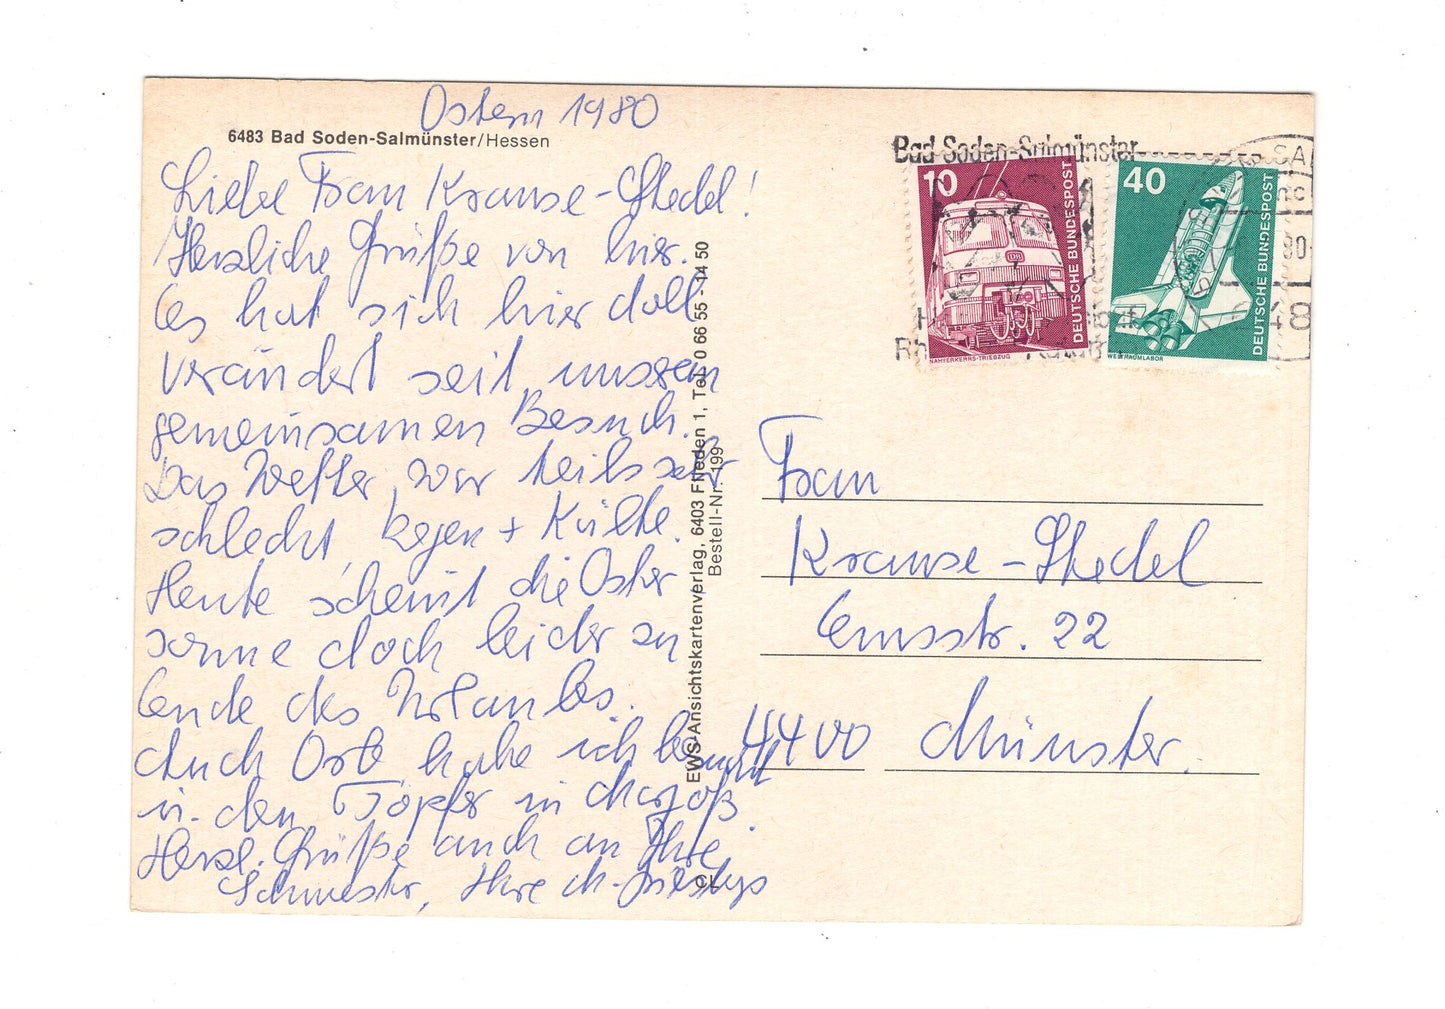 Ostern 1980
6483 Bad Soden-Salmünster/Hessen
Liebe Frau Krause-Stedel!
Herzliche Grüße von hier.
Es hat sich hier doll
verändert seit unserem
gemeinsamen Besuch.
Das Wetter war teils sehr
schlecht, Regen + Kälte.
Heute scheint die Oster
sonne doch leider zu
Ende des Urlaubs.
Auch Orb habe ich besucht
u. den Töpfer in Marjoß.
Herzl. Grüße auch an Ihre
Schwester, Ihre
EWS-Ansichtskartenverlag, 6403 Flieden 1, Tel. 0 66 55 - 14 50
Bestell-Nr. 199
CL
Bad Soden-Salmünster
10
DEUTSCHE BUNDESPOST
NAHVERKEHRS-TRIEBZUG
40
DEUTSCHE BUNDESPOST
WELTRAUMLABOR
Frau
Krause-Stedel
Emsstr. 22
4400 Münster.